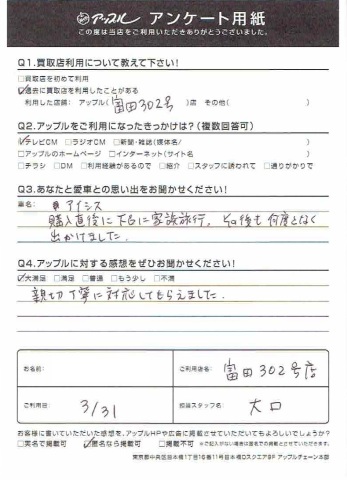 アップル アンケート用紙
この度は当店をご利用いただきありがとうございました。
Q1.買取店利用について教えて下さい!
□買取店を初めて利用
☑過去に買取店を利用したことがある
利用した店舗: アップル(富田302号)店 その他( )
Q2.アップルをご利用になったきっかけは?(複数回答可)
☑テレビCM □ラジオCM □新聞・雑誌(媒体名/ )
□アップルのホームページ □インターネット(サイト名 )
□チラシ □DM □利用経験があるので □紹介 □スタッフに誘われて □通りがかりで
Q3.あなたと愛車との思い出をお聞かせください!
車名: アイシス
購入直後に下呂に家族旅行。その後も何度となく
出かけました。
Q4.アップルに対する感想をぜひお聞かせください!
☑大満足 □満足 □普通 □もう少し □不満
親切丁寧に対応してもらえました。
お名前:
ご利用店名: 富田302号店
ご利用日: 3/31
担当スタッフ名: 大口
お客様に書いていただいた感想を、アップルHPや広告に掲載させていただいてもよろしいでしょうか?
□実名で掲載可 ☑匿名なら掲載可 □掲載不可 ※ご記入がない場合は匿名での掲載とさせていただきます。
東京都中央区日本橋1丁目16番11号日本橋Dスクエア8F アップルチェーン本部